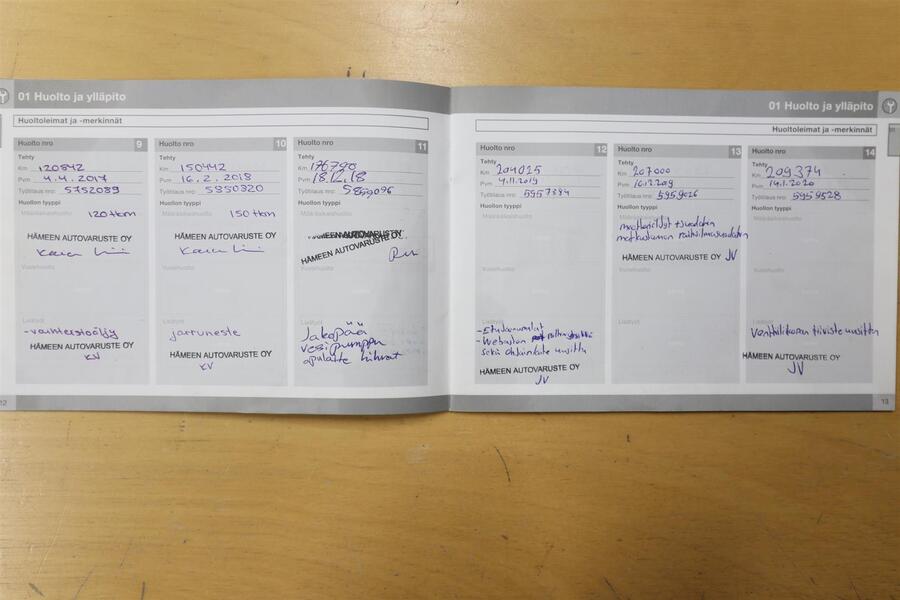 01 Huolto ja ylläpito
Huoltoleimat ja -merkinnät
Huolto nro 9
Tehty
Km 120842
Pvm 4.4.2017
Työtilaus nro: 5752089
Huollon tyyppi
Määräaikaishuolto
120 tkm
HÄMEEN AUTOVARUSTE OY
Vuosihuolto
Lisätyöt
-vaihteistoöljy
HÄMEEN AUTOVARUSTE OY
KV
Huolto nro 10
Tehty
Km 150442
Pvm 16.2.2018
Työtilaus nro: 5850820
Huollon tyyppi
Määräaikaishuolto
150 tkm
HÄMEEN AUTOVARUSTE OY
Vuosihuolto
Lisätyöt
jarruneste
HÄMEEN AUTOVARUSTE OY
KV
Huolto nro 11
Tehty
Km 176790
Pvm 18.12.18
Työtilaus nro: 5899096
Huollon tyyppi
Määräaikaishuolto
HÄMEEN AUTOVARUSTE OY
Vuosihuolto
Jakopää
vesipumppu
apulaite hihnat
12
01 Huolto ja ylläpito
Huoltoleimat ja -merkinnät
Huolto nro 12
Tehty
Km 204025
Pvm 4.11.2019
Työtilaus nro: 5957384
Huollon tyyppi
Määräaikaishuolto
Vuosihuolto
Lisätyöt
- Webaston
sekä uusittu
HÄMEEN AUTOVARUSTE OY
JV
Huolto nro 13
Tehty
Km 207000
Pvm
Työtilaus nro: 5959026
Huollon tyyppi
moottoriöljyt + suodatin
matkustamon raitisilmasuodatin
HÄMEEN AUTOVARUSTE OY JV
Vuosihuolto
Lisätyöt
Huolto nro 14
Tehty
Km 209374
Pvm 14.1.2020
Työtilaus nro: 5959528
Huollon tyyppi
Määräaikaishuolto
Vuosihuolto
Lisätyöt
Venttiilikopan tiiviste uusittu
HÄMEEN AUTOVARUSTE OY
JV
13